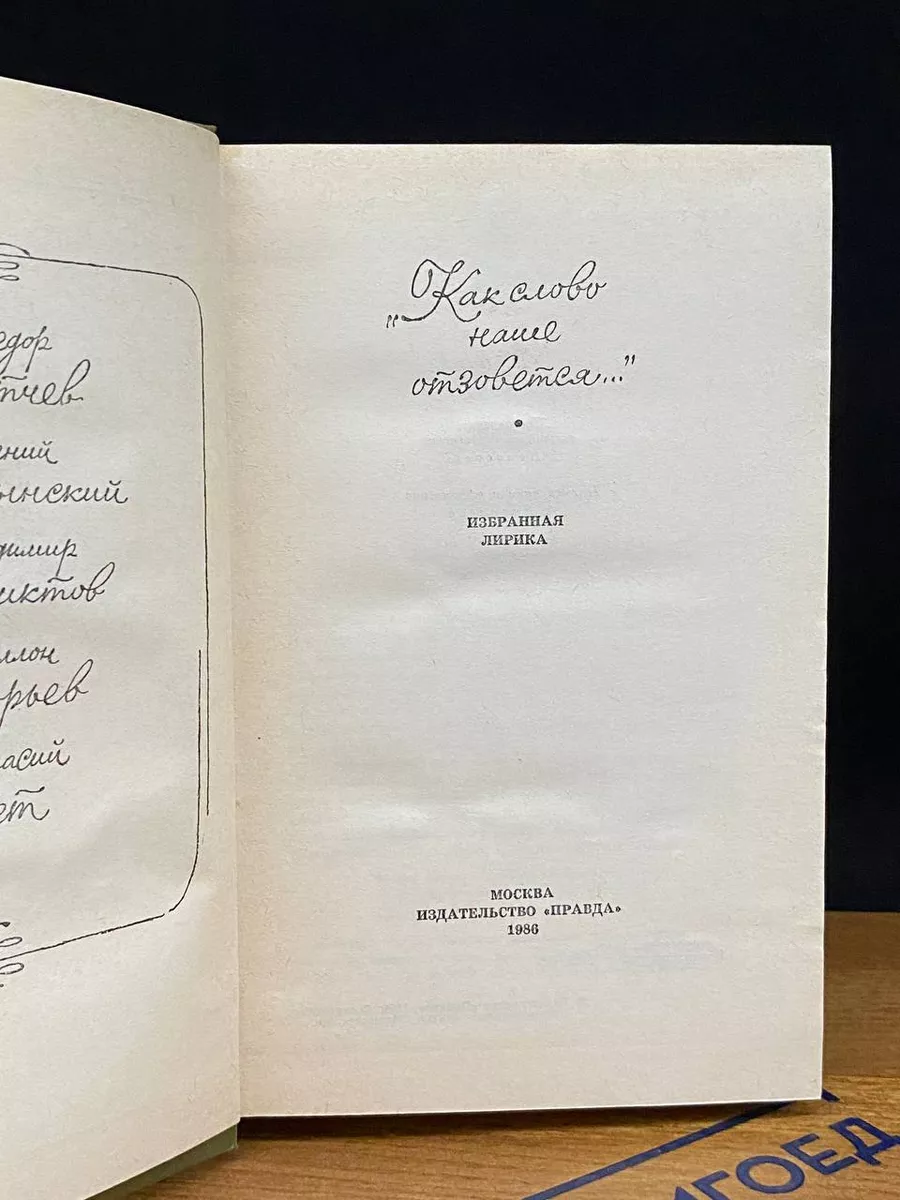 едор
тчев
ений
ынский
димир
иктов
ллон
орьев
асий
ет
„Как слово
наше
отзовется..."
•
ИЗБРАННАЯ
ЛИРИКА
МОСКВА
ИЗДАТЕЛЬСТВО «ПРАВДА»
1986
ИГОЕД